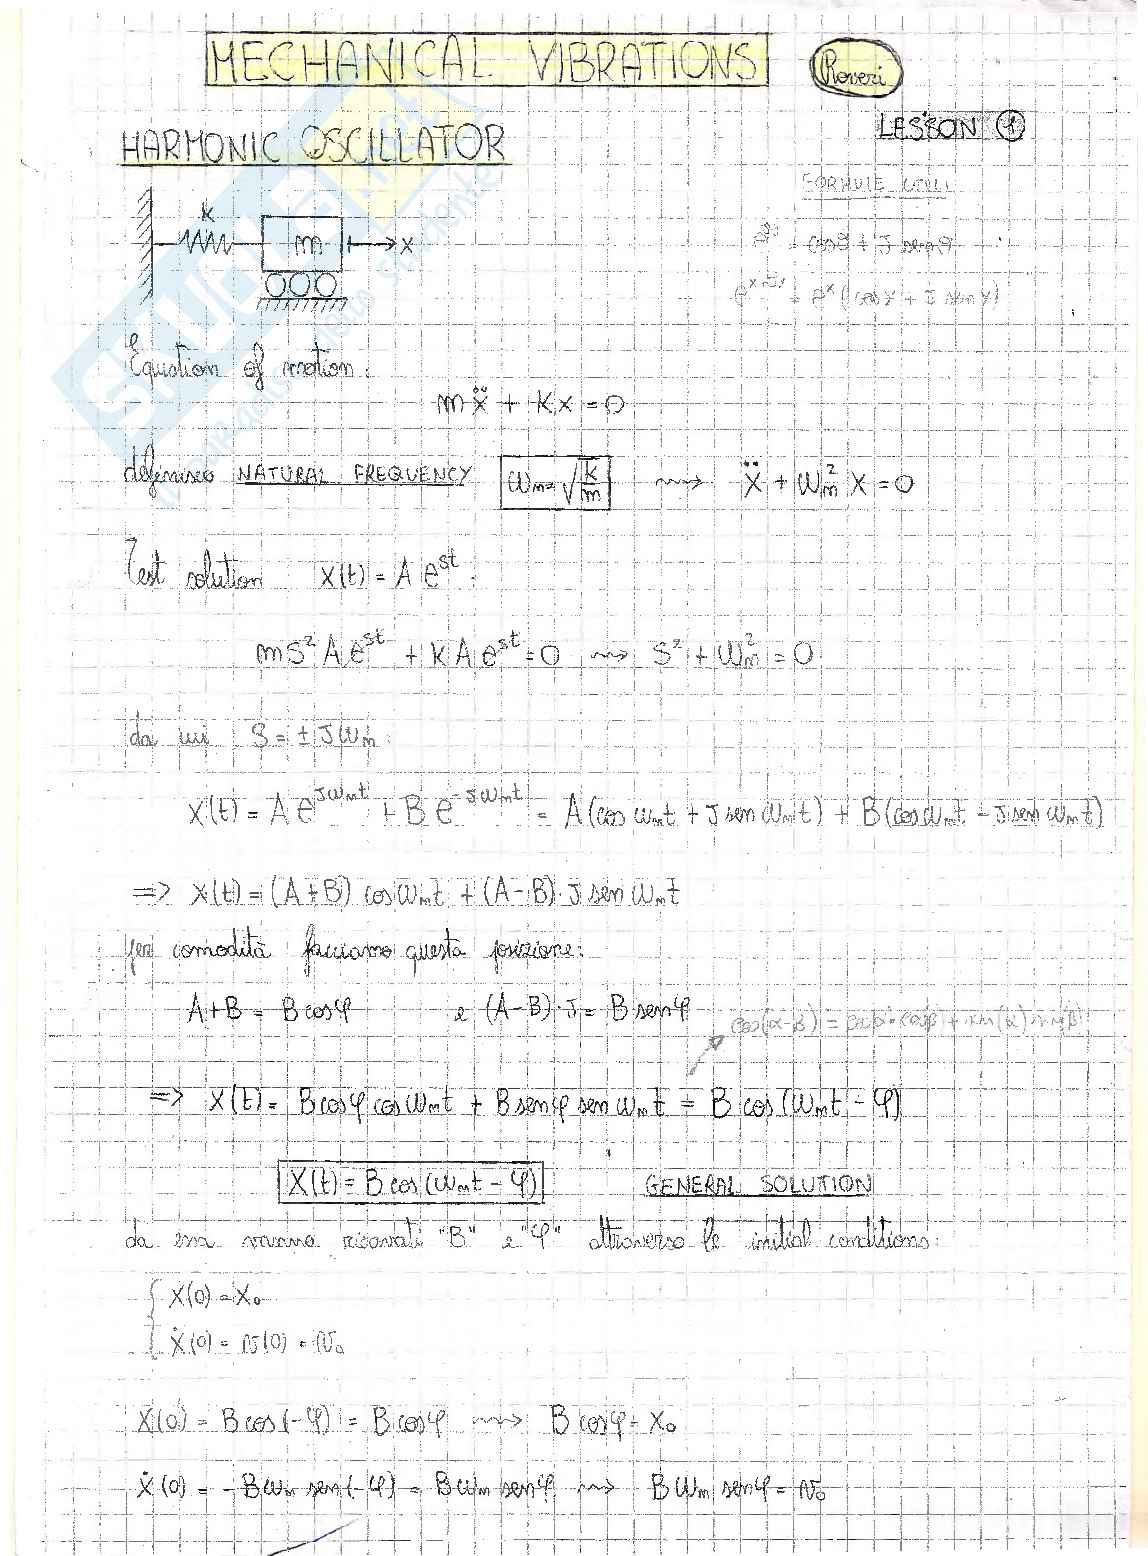 MECHANICAL VIBRATIONS
Roveri
LESSON 1
HARMONIC OSCILLATOR
FORMULE UTILI
k
m
x
Equation of motion:
mẍ + Kx = 0
definisco NATURAL FREQUENCY ωₙ = √(k/m) ⇝ ẍ + ωₙ² x = 0
Test solution x(t) = A e^{st}:
mS² A e^{st} + k A e^{st} = 0 ⇝ S² + ωₙ² = 0
da cui S = ± Jωₙ:
x(t) = A e^{Jωₙt} + B e^{-Jωₙt} = A(cos ωₙt + J sen ωₙt) + B(cos ωₙt - J sen ωₙt)
=> x(t) = (A+B) cos ωₙt + (A-B)·J sen ωₙt
per comodità facciamo questa posizione:
A+B = B cosφ e (A-B)·J = B senφ
cos(α-β) = cosα·cosβ + sen(α) sen(β)
=> x(t) = B cosφ cos ωₙt + B senφ sen ωₙt = B cos(ωₙt - φ)
x(t) = B cos(ωₙt - φ) GENERAL SOLUTION
da essa vanno ricavati "B" e "φ" attraverso le initial conditions:
{ x(0) = x₀
ẋ(0) = v(0) = v₀
x(0) = B cos(-φ) = B cosφ ⇝ B cosφ = x₀
ẋ(0) = -Bωₙ sen(-φ) = Bωₙ senφ ⇝ Bωₙ senφ = v₀